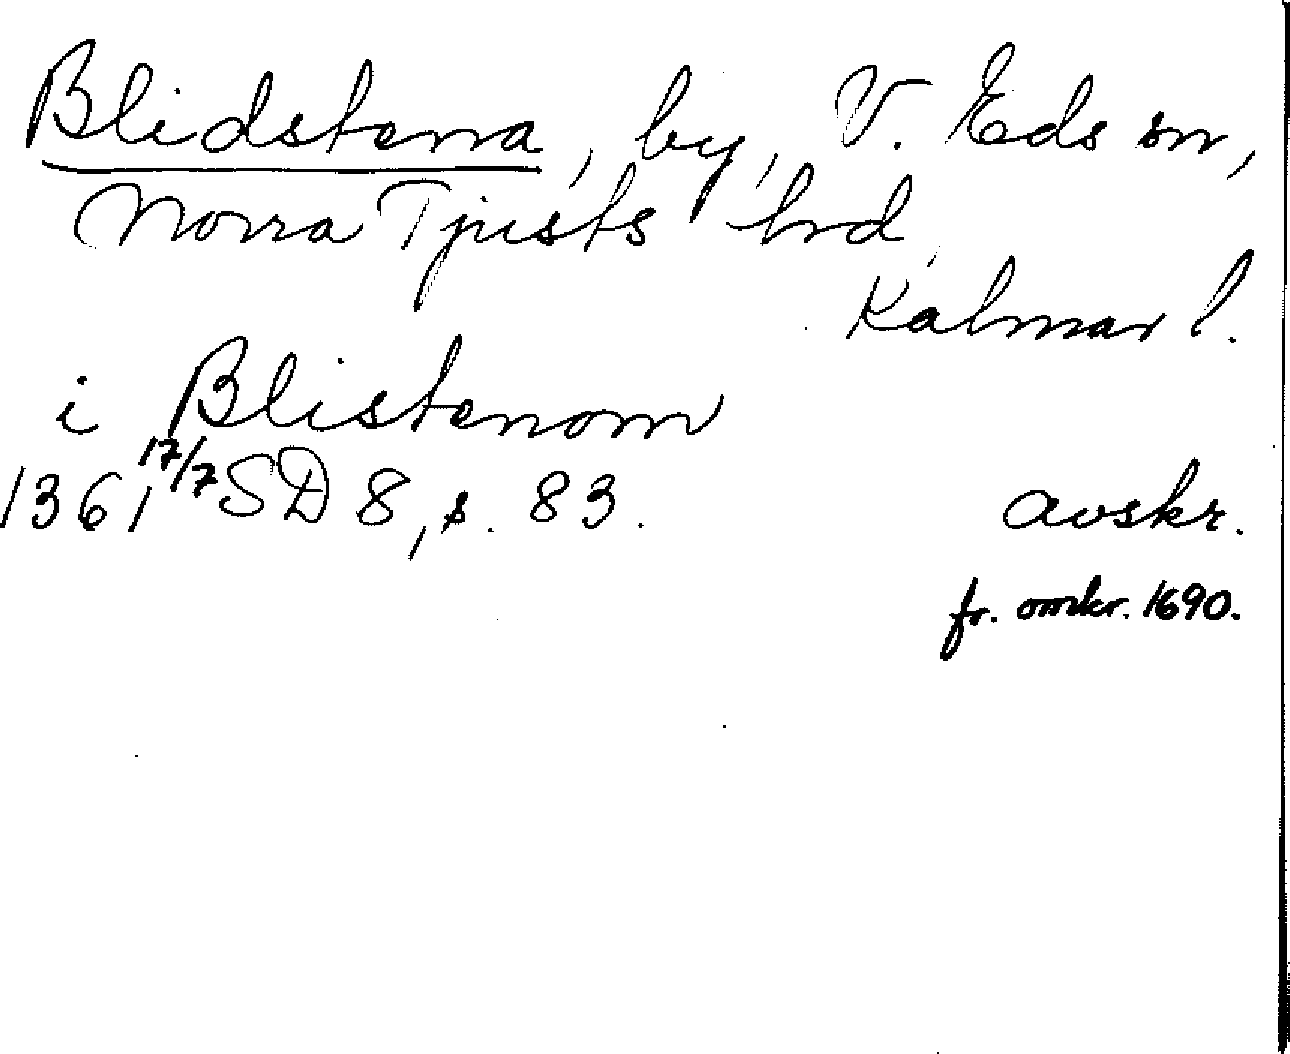 Blidstena, by, V. Eds sn,
Norra Tjusts hrd,
Kalmar l.
i Blistenom
1361 17/7 SD 8, s. 83. avskr.
fr. omkr. 1690.